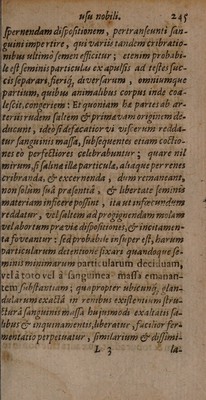 usu nobili. 245
spernendam dispositionem, pertranseunti san-
guini impertire, qui variis tandem cribratio-
nibus ultimò semen efficitur; etenim probabi-
le est seminis particulas exapulsis ad testes suc-
cis separari, fierig, diversarum, omniumque
partium, quibus animalibus corpus inde coa-
lescit, congeriem: Et quoniam hæ partes ab ar-
teriis rudem saltem & primævam originem de-
ducunt, ideò fædefacatior vi viscerum reddi-
tur sanguinis massa, subsequentes etiam coctio-
nes eò perfectiores celebrabuntur; quare nil
mirum, si salinæ illæ particulæ, aliaque per renes
cribranda, & excernenda, dum remaneant,
non solùm suâ præsentiâ, & libertate seminis
materiam inficere possint, ita ut infœcundum
reddatur, vel saltem ad progignendam molam
vel abortum præviæ dispositiones, & incitamen-
ta foveantur: sed probabile insuper est, harum
particularum detentione fixari quandoque se-
minis minimarum particularum deciduam,
vel à toto vel à sanguinea massa emanan-
tem substantiam; quapropter ubicunq, glan-
dularum exactâ in renibus existentium stru-
cturâ sanguinis massa hujusmodi exaltatis sa-
libus & inquinamentis, liberatur, facilior fer-
mentatio perpetuatur, similarium & dissimi-
L 3 la-